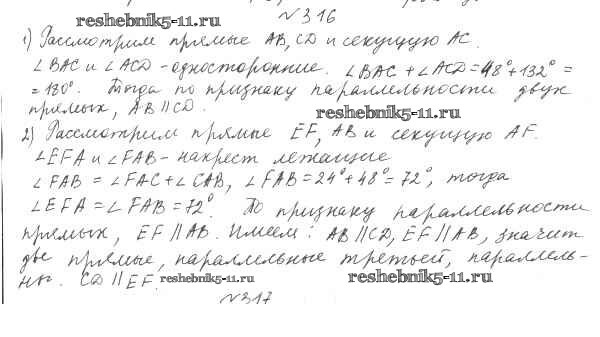 №316
reshebnik5-11.ru
1) Рассмотрим прямые AB, CD и секущую AC.
∠BAC и ∠ACD - односторонние. ∠BAC + ∠ACD = 48° + 132° =
= 180°. Тогда по признаку параллельности двух
прямых, AB || CD.
reshebnik5-11.ru
2) Рассмотрим прямые EF, AB и секущую AF.
∠EFA и ∠FAB - накрест лежащие
∠FAB = ∠FAC + ∠CAB, ∠FAB = 24° + 48° = 72°, тогда
∠EFA = ∠FAB = 72°. По признаку параллельности
прямых, EF || AB. Имеем: AB || CD, EF || AB, значит
две прямые, параллельные третьей, параллель-
ны. CD || EF.
reshebnik5-11.ru reshebnik5-11.ru
№317